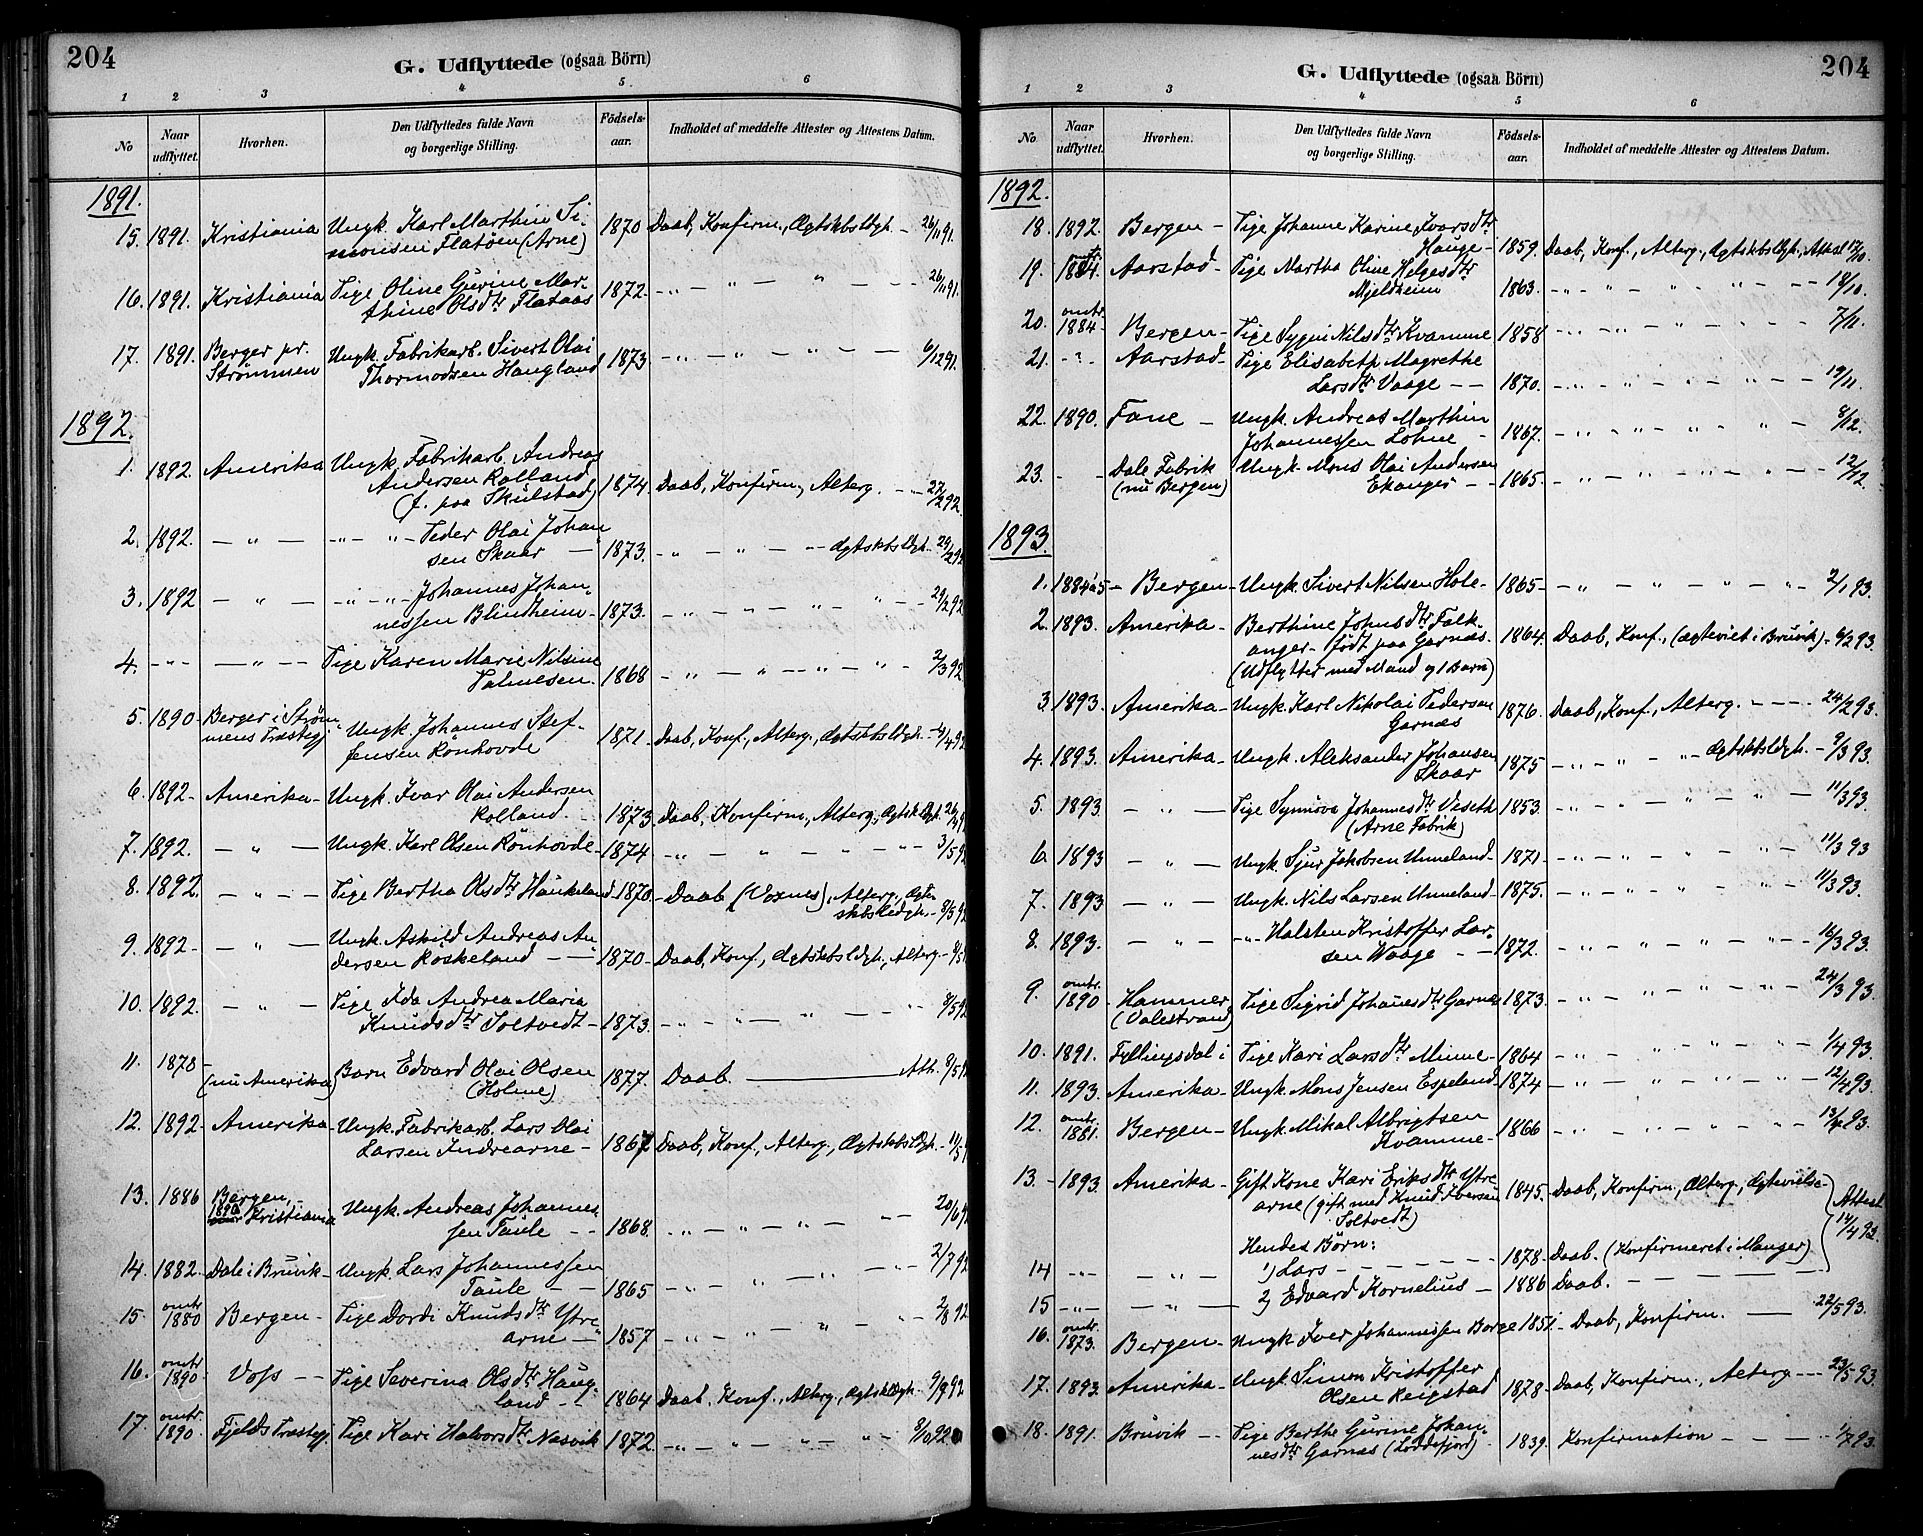 204
G. Udflyttede (ogsaa Börn)
1 2 3 4 5 6
No Naar udflyttet. Hvorhen. Den Udflyttedes fulde Navn og borgerlige Stilling. Födsels-aar. Indholdet af meddelte Attester og Attestens Datum.
1891.
15. 1891. Kristiania Ungk. Karl Marthin Si- 1870 Daab, Konfirm., Ægtskbsldgh. - 26/11 91.
monsen Flatøen (Arne)
16. 1891. Kristiania Pige Oline Gurine Mar- 1872. - " - " - " - - 26/11 91.
thine Olsdtr Flataas
17. 1891. Berger pr. Ungk. Fabrikarb. Sivert Olai 1873 - " - " - " - - 6/12 91.
Strømmen Thormodsen Haugland
1892.
1. 1892. Amerika Ungk. Fabrikarb. Andreas
Andersen Rolland 1874. Daab, Konfirm., Alterg. - - 22/2 92.
(f. paa Skulstad)
2. 1892. - " - - " - " - Peder Olai Johan
sen Skaar - 1873. - " - " - " - Ægtskbsldgh. 29/2 92
3. 1892 - " - - " - " - Johannes Johan-
nessen Blindheim - 1873. - " - " - " - " - - 29/2 92
4. - " - - " - - Pige Karen Marie Nilsine
Salmesen. 1868 - " - " - " - " - 2/3 92
5. 1890 Berger i Strøm Ungk. Johannes Stef-
mens Præstegj. fensen Rönhovde 1871. Daab, Konf., Alterg., Ægtskbsldgh. - 4/4 92
6. 1892. Amerika - Ungk. Ivar Olai Andersen
Rolland. - 1873. Daab, Konfirm., Alterg., Ægtsk.ldgh. 26/4 92
7. 1892. - " - Ungk. Karl Olsen Rönhovde - 1874 - " - " - " - " - - 3/5 92
8. 1892. - " - Pige Bertha Olsdtr Haukeland - 1870. - Daab (Voxnes), Alterg., Ægte-
skbsledgh. - 8/5 92
9. 1892 - - " - Ungk. Askild Andreas An
dersen Röskeland - - 1870 - Daab, Konf., Ægtskbsldgh., Alterg. - 8/5
10. 1892. - " - Pige Ida Andrea Maria
Knudsdtr Soltvedt - 1873. - " - - " - " - " - 8/5 92
11. 1878 - Barn Edvard Olai Olsen
(nu Amerika) (Holme) 1877. Daab. Ath. 8/5 9
12. 1892. Amerika - Ungk. Fabrikarb. Lars Olai
Larsen Indrearne - 1867 Daab, Konf., Alterg., Ægtskbsldgh. - 11/5 9
13. 1886 Bergen, Ungk. Andreas Johannes
1890 Kristiania sen Taule - - 1868. - " - " - " - " - 20/6 92
14. 1882. Dale i Bruvik - Ungk. Lars Johannessen
Taule - - 1865 - " - " - " - " - 2/7 92
15. omtr 1880 Bergen - Pige Dordi Knudsdtr Ytre
arne - 1857 - " - " - " - " - 2/8 92
16. omtr 1890 Voss - - Pige Severina Olsdtr Haug-
land - 1864 Daab. Konf., Alterg., Ægtsk.ldgh. - 9/9 92
17. omtr. 1890. Fjelds Præstegj. Pige Kari Halvorsdtr Nasvik 1872. - " - " - " - " - 8/10 92
204
G. Udflyttede (ogsaa Börn)
1 2 3 4 5 6
No. Naar udflyttet. Hvorhen. Den Udflyttedes fulde Navn og borgerlige Stilling. Födsels-aar. Indholdet af meddelte Attester og Attestens Datum.
1892.
18. 1892. Bergen - Pige Johanne Karine Ivarsdtr
Hauge - 1859. Daab, Konf., Alterg., Ægtskbsldgh., Attest 12/10.
19. omtr 1884. Aarstad - Pige Martha Oline Helgesdtr
Mjeldheim 1863. - " - " - " - " - - 18/10.
20. omtr. 1884 - Bergen - Pige Sygni Nilsdtr Kvamme 1858 - " - " - " - " - 7/11.
21. - " - Aarstad - Pige Elisabeth Magrethe
Larsdtr Vaage - - 1870. - " - " - " - " - - 19/11.
22. 1890. Fane - Ungk. Andreas Marthin
Johannessen Lohne - 1867. - " - " - " - " - 8/12.
23. - - Dale Fabrik Ungk. Mons Olai Andersen
(nu Bergen) Ekanger - - 1865. - " - " - " - " - 12/12.
1893.
1. 1884 à 5 - Bergen - Ungk. Sivert Nilsen Hole - 1865 - - " - " - " - " - 2/1 93.
2. 1893. Amerika - Berthine Johnsdtr Falk-
anger - født paa Garnæs. 1864. Daab, Konf., (Ægteviet i Bruvik) - 6/2 93.
(Udflytter med Mand og 1 Barn)
3. 1893. Amerika - Ungk. Karl Nikolai Pedersen
Garnæs 1876. Daab, Konf., Alterg. - - - 24/2 93.
4. 1893. Amerika - Ungk. Aleksander Johansen
Skaar 1875 - " - " - " - Ægtskbsldgh. - 9/3 93.
5. 1893 - " - Pige Synnøva Johannesdtr Veseth 1853 - " - " - " - " - 11/3 93.
(Arne Fabrik)
6. 1893 - " - Ungk. Sjur Jakobsen Unneland - 1871 - - " - " - " - " - 11/3 93
7. 1893 - " - Ungk. Nils Larsen Unneland - 1875. - " - " - " - " - 11/3 93.
8. 1893. - " - - " - Halsten Kristoffer Lar-
sen Waage - - 1872. - " - " - " - " - 16/3 93.
9. omtr. 1890 - Hammer Pige Sigrid Johanesdtr Garnæs 1873. - " - " - " - " - 24/3 93.
(Valestrand)
10. 1891. Fyllingsdal i Pige Kari Larsdtr Minne - 1864 - " - " - " - " - 1/4 93.
11. 1893. Amerika - Ungk. Mons Jensen Espeland 1874 - - " - " - " - " - 12/4 93.
12. omtr. 1881. Bergen - Ungk. Mikal Albrigtsen
Kvamme - 1866 - " - " - " - " - 13/4 93.
13. - 1893. Amerika - Gift Kone Kari Eriksdtr Ytre
arne (gift med Knud Iversen 1845. Daab, Konfirm., Alterg., Ægtevielse
Soltvedt) Attest 14/4 93.
Hendes Børn:
14 - " - - " - 1) Lars - - - - - - 1878. Daab. (Konfirmeret i Manger)
15 - " - - " - 2) Edvard Kornelius - 1886 Daab. - - - -
16. omtr. 1873. Bergen - Ungk Iver Johannessen Borge 1851. - Daab, Konfirm. - 22/5 93.
17. 1893. Amerika - Ungk. Simon Kristoffer
Olsen Reigstad 1878. Daab, Konfirm., Alterg. - - - 23/5 93.
18. 1891. Bruvik - - Pige Berthe Gurine Johan-
nesdtr Garnæs (Loddefjord) - 1839. Konfirmation - - - - 1/7 93.